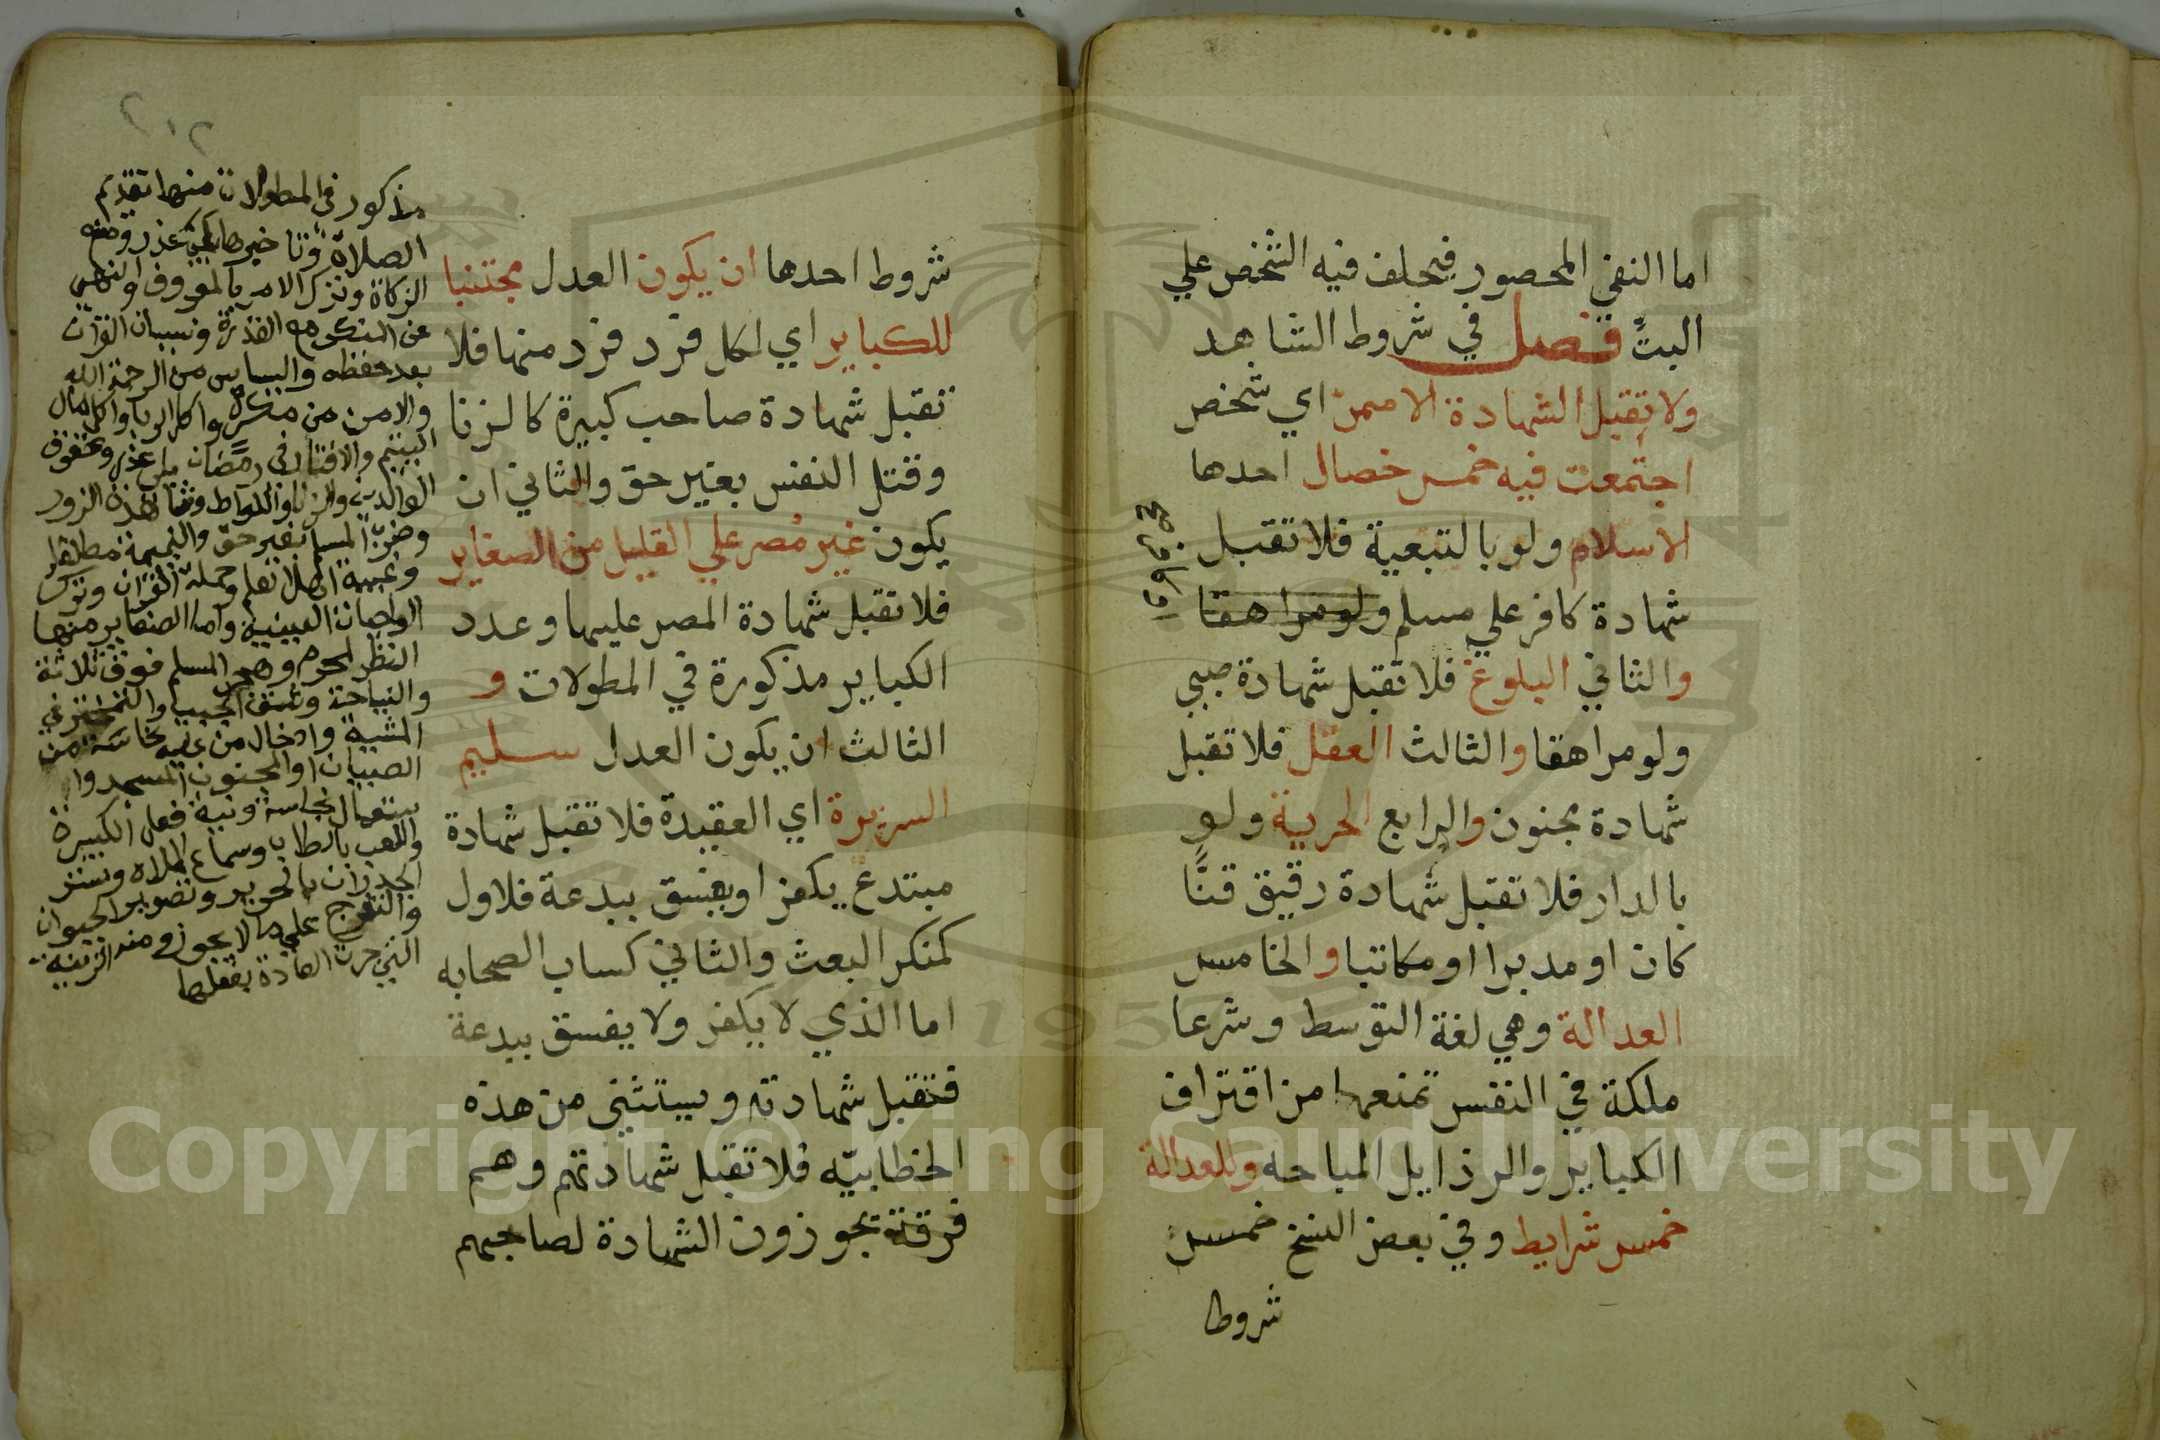 اما النفي المحصور فيحلف فيه الشخص علي
البتّ فصل في شروط الشاهد
ولا تقبل الشهادة الا ممن اي شخص
اجتمعت فيه خمس خصال احدها
الاسلام ولو بالتبعية فلا تقبل
شهادة كافر علي مسلم ولو مراهقا
والثاني البلوغ فلا تقبل شهادة صبي
ولو مراهقا والثالث العقل فلا تقبل
شهادة مجنون والرابع الحرية ولو
بالدار فلا تقبل شهادة رقيق قنًّا
كان او مدبرا او مكاتبا والخامس
العدالة وهي لغة التوسط وشرعا
ملكة في النفس تمنعها من اقتراف
الكباير والرذايل المباحه وللعدالة
خمس شرايط وفي بعض النسخ خمس
شروط
شروط احدها ان يكون العدل مجتنبا
للكباير اي لكل فرد فرد منها فلا
تقبل شهادة صاحب كبيرة كالزنا
وقتل النفس بغير حق والثاني ان
يكون غير مصر علي القليل من الصغاير
فلا تقبل شهادة المصر عليها وعدد
الكباير مذكورة في المطولات و
الثالث ان يكون العدل سليم
السريرة اي العقيدة فلا تقبل شهادة
مبتدع يكفر او يفسق ببدعة فلاول
كمنكر البعث والثاني كساب الصحابه
اما الذي لا يكفر ولا يفسق ببدعة
فتقبل شهادته ويستثني من هذه
الخطابيّه فلا تقبل شهادتهم وهم
فرقة يجوزون الشهادة لصاحبهم
مذكور في المطولات منها تقديم
الصلاة وتاخيرها بغير عذر ومنع
الزكاة وترك الامر بالمعروف والنهي
عن المنكر مع القدرة ونسيان القرآن
بعد حفظه والياس من الرحمة الله
والامن من مكره واكل الربا واكل مال
اليتيم والافطار في رمضان من غير عذر وعقوق
الوالدين والزنا واللواط وشهادة الزور
وضرب المسلم بغير حق والنميمة مطلقا
وغيبة اهل العلم وحملة القرآن وترك
الواجبات العينية واما الصغاير منها
النظر المحرم وهجر المسلم فوق ثلاثة
والنياحة وشق الجيب والتبختر في
المشية وادخال من عليه نجاسة من
الصبيان او المجنون المسجد وا
ستعمال نجاسة ونية فعل الكبيرة
واللعب بالطاب وسماع الملاه وستر
الجدران بالحرير وتصوير الحيوان
والتفرج علي ما لا يجوز ومنه الزينة
التي جرت العادة بفعلها
Copyright © King Saud University
1957